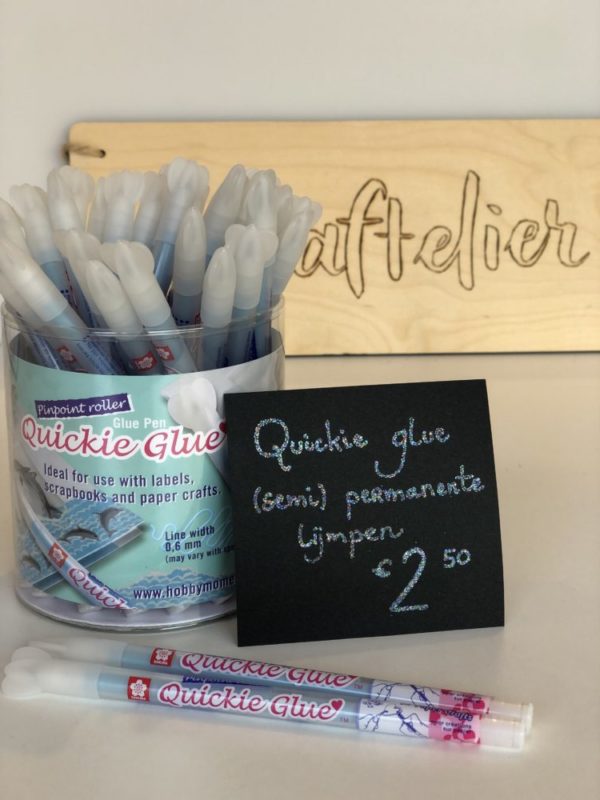 aftelier
Pinpoint roller
Glue Pen
Quickie Glue
Ideal for use with labels,
scrapbooks and paper crafts.
Line width
0,6 mm
(may vary with
www.hobbymome
Quickie glue
(semi) permanente
lijmpen
€ 2 50
Quickie Glue
Quickie Glue™